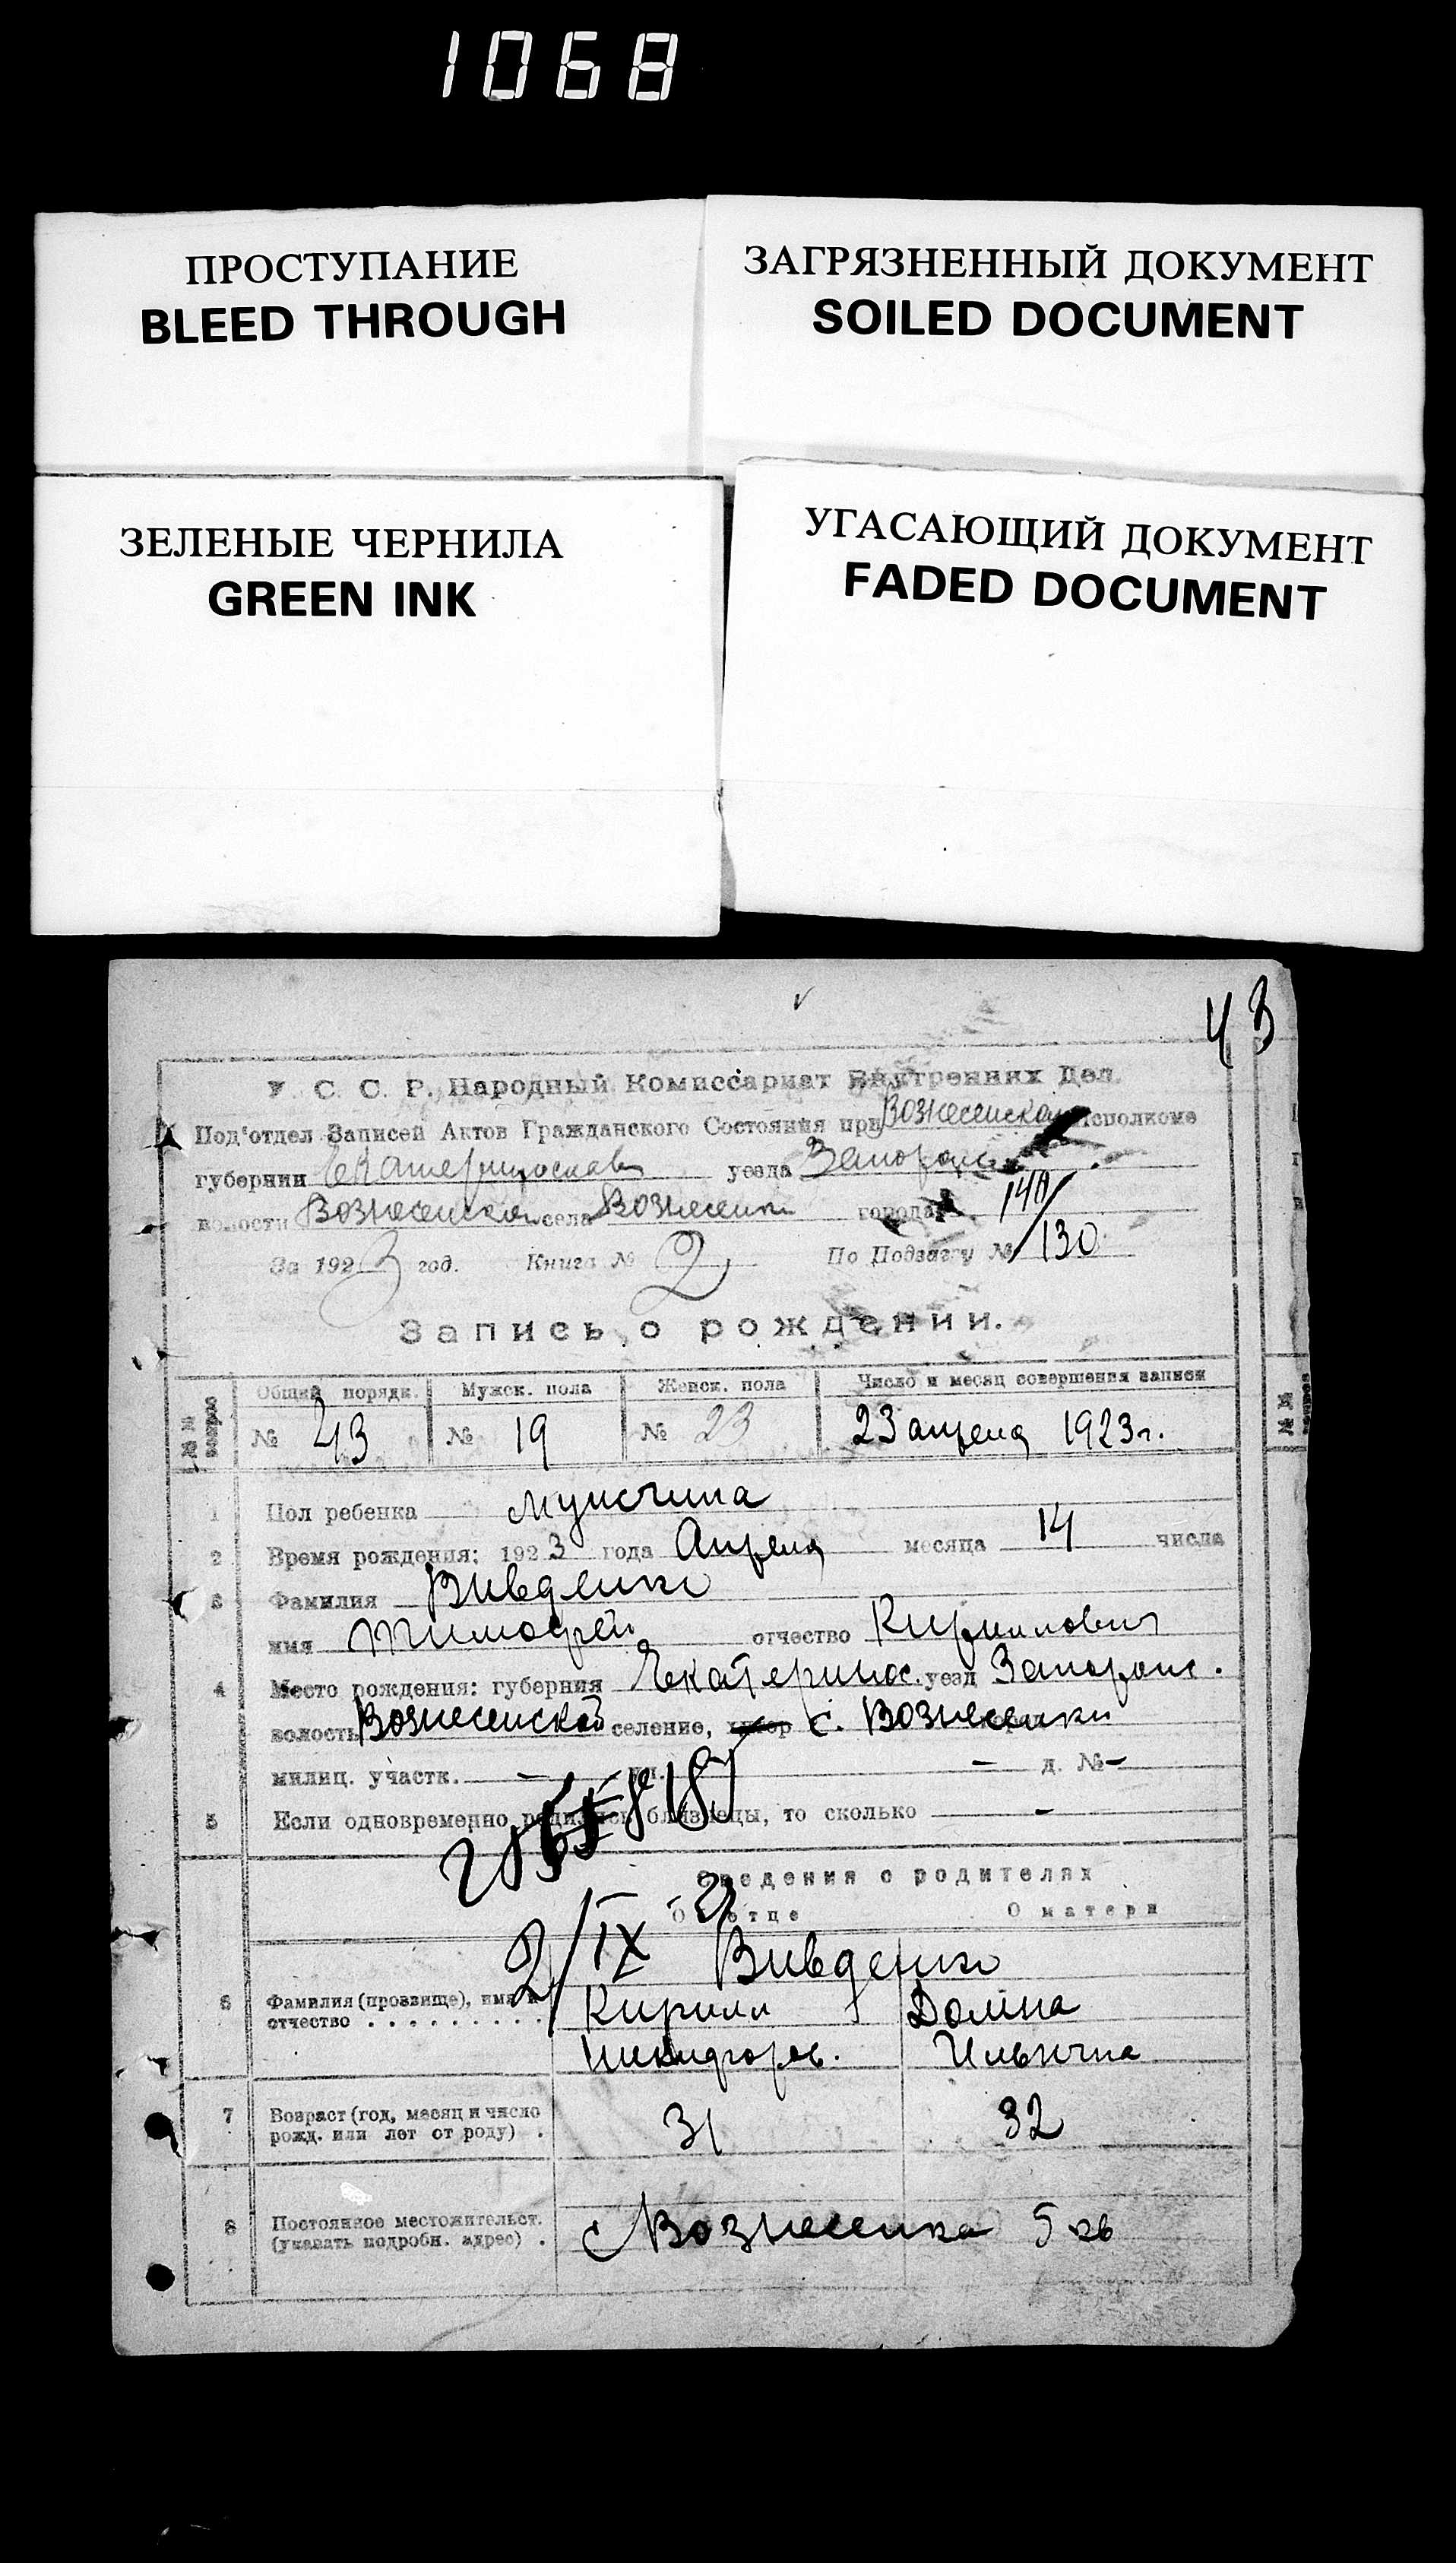 1068
ПРОСТУПАНИЕ
BLEED THROUGH
ЗАГРЯЗНЕННЫЙ ДОКУМЕНТ
SOILED DOCUMENT
ЗЕЛЕНЫЕ ЧЕРНИЛА
GREEN INK
УГАСАЮЩИЙ ДОКУМЕНТ
FADED DOCUMENT
43
У. С. С. Р. Народный Комиссариат Внутренних Дел.
Под'отдел Записей Актов Гражданского Состояния при Вознесенском исполкоме
губернии Екатеринослав уезда Запорож
волости Вознесенской села Вознесенки города 140/
За 1923 год. Книга № 2 По Подзагу № 130
Запись о рождении.
№№ вопрос Общий порядк. Мужск. пола Женск. пола Число и месяц совершения записи
№ 43 № 19 № 23 23 апреля 1923 г.
1 Пол ребенка мужчина
2 Время рождения: 1923 года Апреля месяца 14 числа
3 Фамилия Вивденко
имя Тимофей отчество Кириллович
4 Место рождения: губерния Екатеринос. уезд Запорож.
волость Вознесенской селение, хутор с. Вознесенки
милиц. участк. — ул. — д. № —
5 Если одновременно родились близнецы, то сколько —
Сведения о родителях
О отце О матери
2/IX Вивденко
6 Фамилия (прозвище), имя и Кирилл Домна
отчество . . . . . . . . . Никифоров. Ильична
7 Возраст (год, месяц и число 31 32
рожд. или лет от роду) .
8 Постоянное местожительст. с Вознесенка 5 кв
(указать подробн. адрес) .